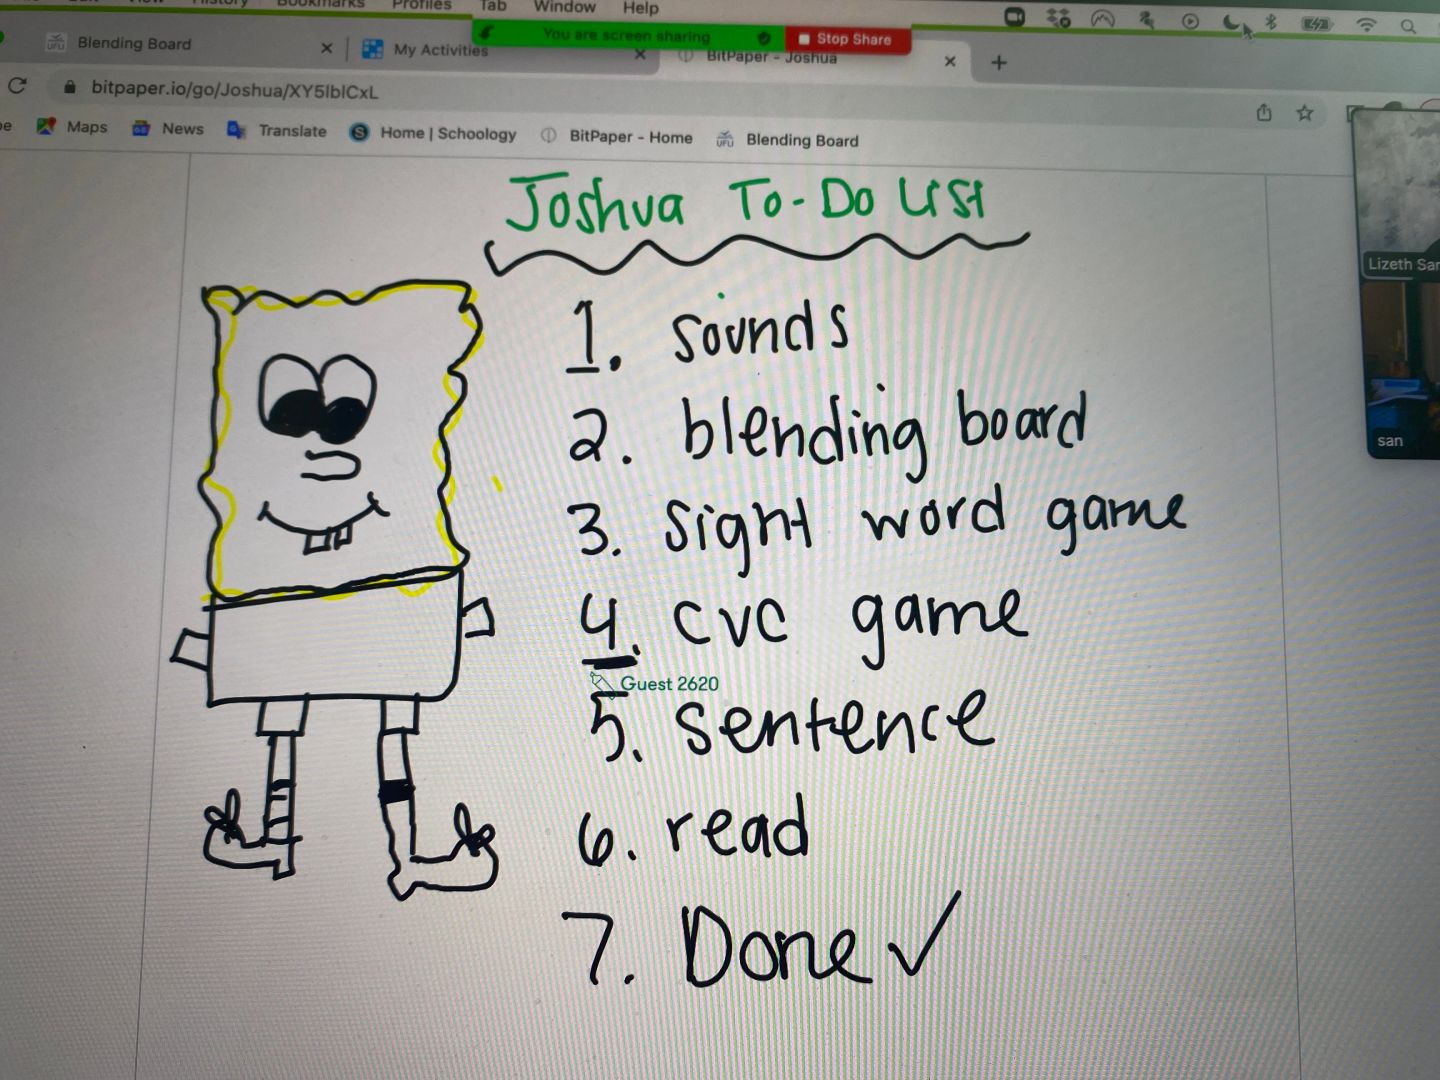 History Bookmarks Profiles Tab Window Help
You are screen sharing Stop Share
Blending Board My Activities BitPaper - Joshua
bitpaper.io/go/Joshua/XY5lblCxL
Maps News Translate Home | Schoology BitPaper - Home UFLI Blending Board
Joshua To-Do List
Lizeth
1. sounds
2. blending board
san
3. sight word game
4. cvc game
Guest 2620
5. sentence
6. read
7. Done ✓